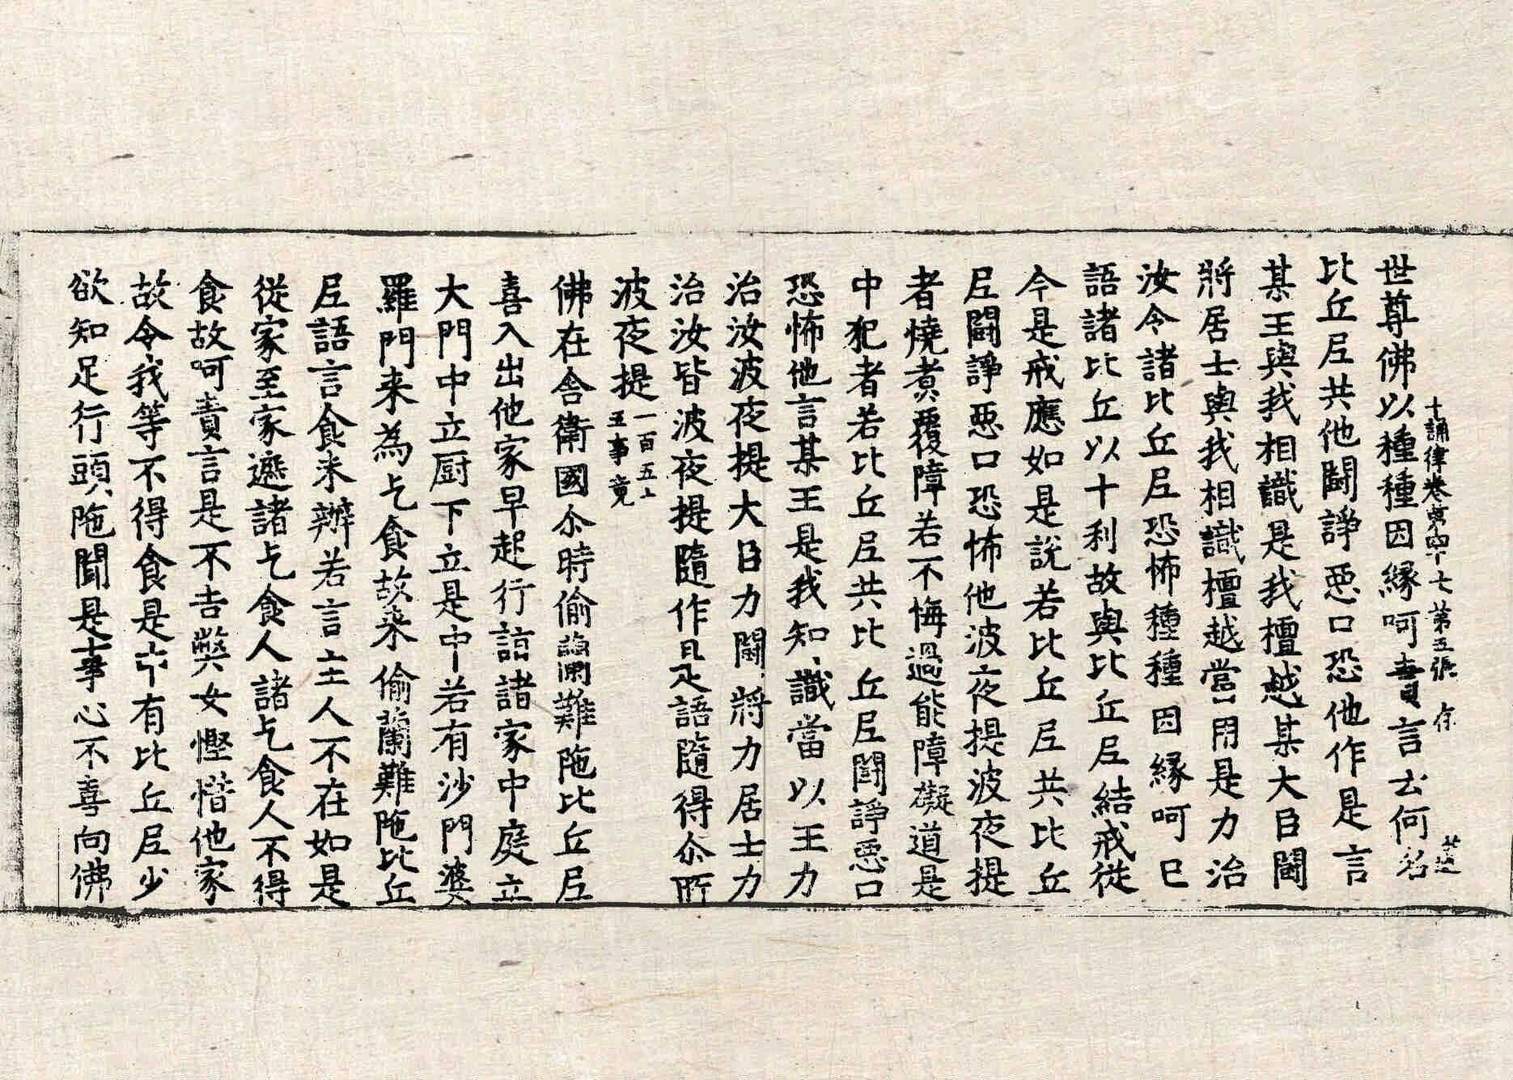 十誦律卷第四十七 第五張 存
世尊佛以種種因緣呵責言云何名
比丘尼共他鬪諍惡口恐他作是言
某王與我相識是我檀越某大臣鬪
將居士與我相識檀越當用是力治
汝令諸比丘尼恐怖種種因緣呵已
語諸比丘以十利故與比丘尼結戒從
今是戒應如是說若比丘尼共比丘
尼鬪諍惡口恐怖他波夜提波夜提
者燒煮覆障若不悔過能障礙道是
中犯者若比丘尼共比丘尼鬪諍惡口
恐怖他言某王是我知識當以王力
治汝波夜提大臣力鬪將力居士力
治汝皆波夜提隨作是語隨得尒所
波夜提 一百五十五事竟
佛在舍衛國尒時偷蘭難陁比丘尼
喜入出他家早起行諸家中庭立
大門中立廚下立是中若有沙門婆
羅門来為乞食故来偷蘭難陁比丘
尼語言食未辦若言主人不在如是
從家至家遮諸乞食人諸乞食人不得
食故呵責言是不吉弊女慳惜他家
故令我等不得食是中有比丘尼少
欲知足行頭陁聞是事心不喜向佛